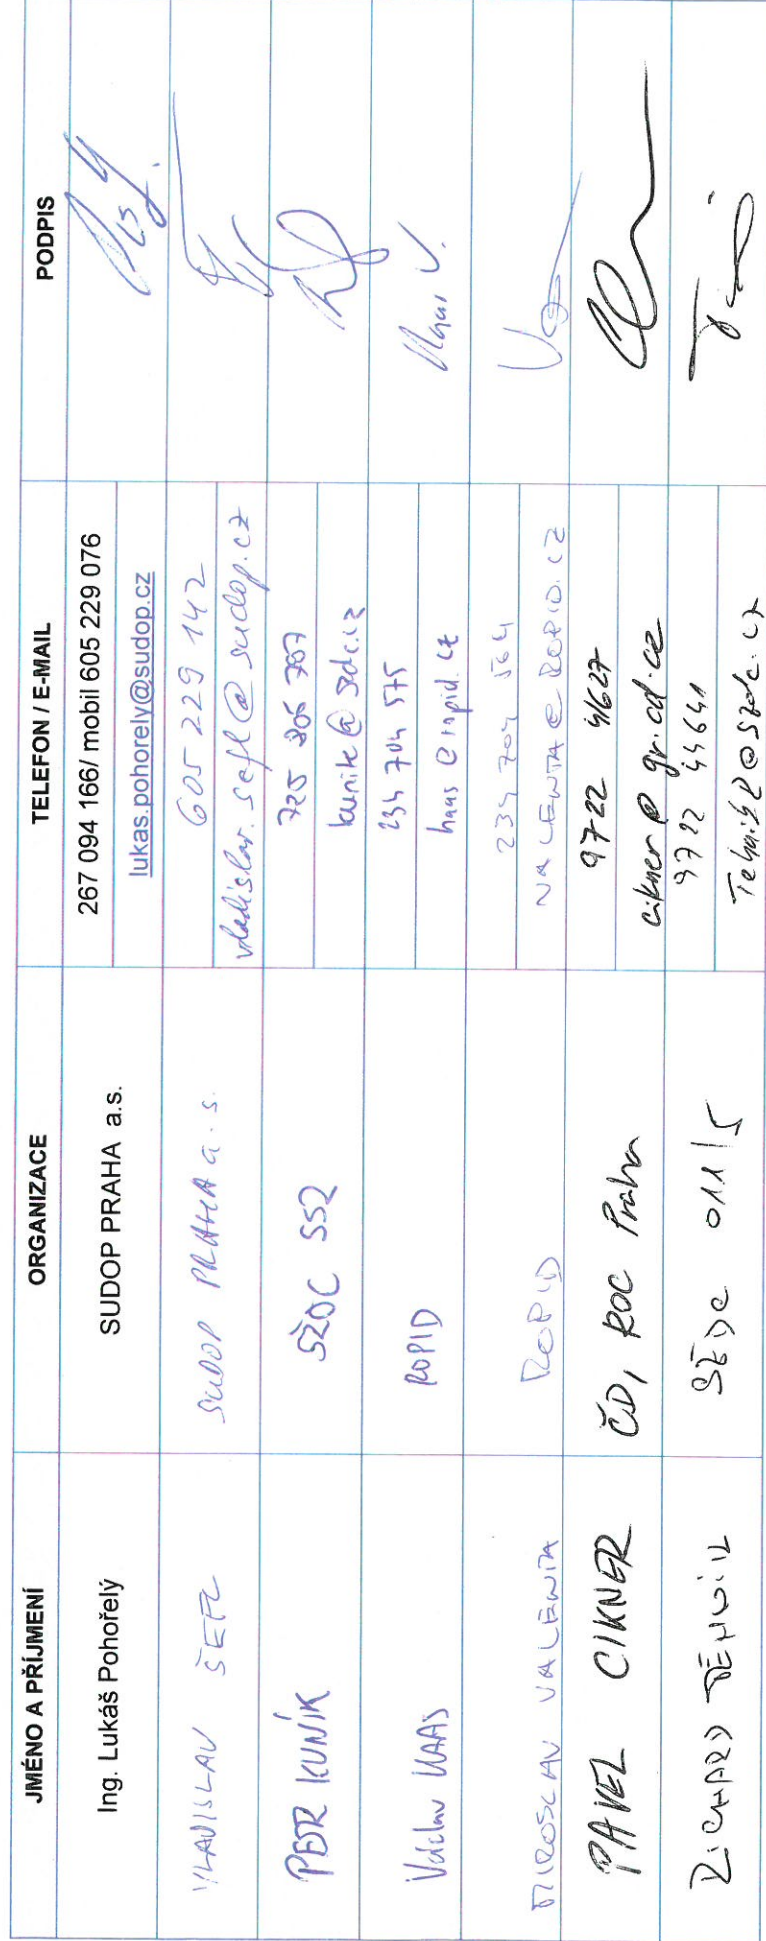 JMÉNO A PŘÍJMENÍ ORGANIZACE TELEFON / E-MAIL PODPIS
Ing. Lukáš Pohořelý SUDOP PRAHA a.s. 267 094 166/ mobil 605 229 076
lukas.pohorely@sudop.cz
VLADISLAV ŠEFL SUDOP PRAHA a.s. 605 229 142
vladislav.sefl@sudop.cz
PETR KUNÍK SŽDC SS2 725
kunik@szdc.cz
Václav HAAS ROPID 234 704 575
haas@ropid.cz Haas V.
MIROSLAV VALENTA ROPID 234 704 564
VALENTA@ROPID.CZ
PAVEL CIKNER ČD, ROC Praha 9722 41627
cikner@gr.cd.cz
RICHARD SŽDC 011/5 9722 44641